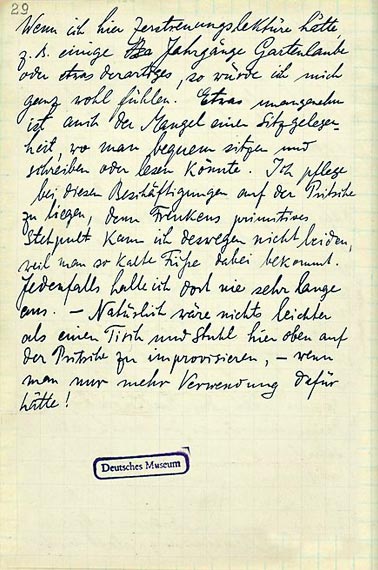 29
Wenn ich hier Zerstreuungslektüre hätte,
z.B. einige Jahrgänge Gartenlaube
oder etwas derartiges, so würde ich mich
ganz wohl fühlen. Etwas unangenehm
ist auch der Mangel einer Sitzgelegen-
heit, wo man bequem sitzen und
schreiben oder lesen könnte. Ich pflege
bei diesen Beschäftigungen auf der Pritsche
zu liegen, denn primitives
Stehpult kann ich deswegen nicht leiden,
weil man so kalte Füße dabei bekommt.
Jedenfalls halte ich dort nie sehr lange
aus. – Natürlich wäre nichts leichter
als einen Tisch und Stuhl hier oben auf
der Pritsche zu improvisieren, – wenn
man nur mehr Verwendung dafür
hätte!
Deutsches Museum